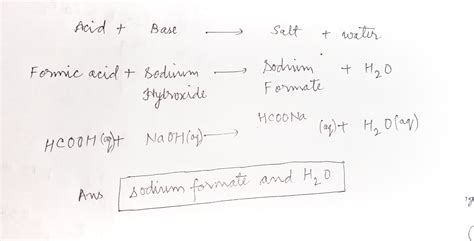 Acid + Base ⟶ Salt + water
Formic acid + Sodium ⟶ Sodium + H₂O
Hydroxide Formate
HCOOH (aq)+ NaOH(aq) ⟶ HCOONa (aq)+ H₂O(aq)
Ans sodium formate and H₂O